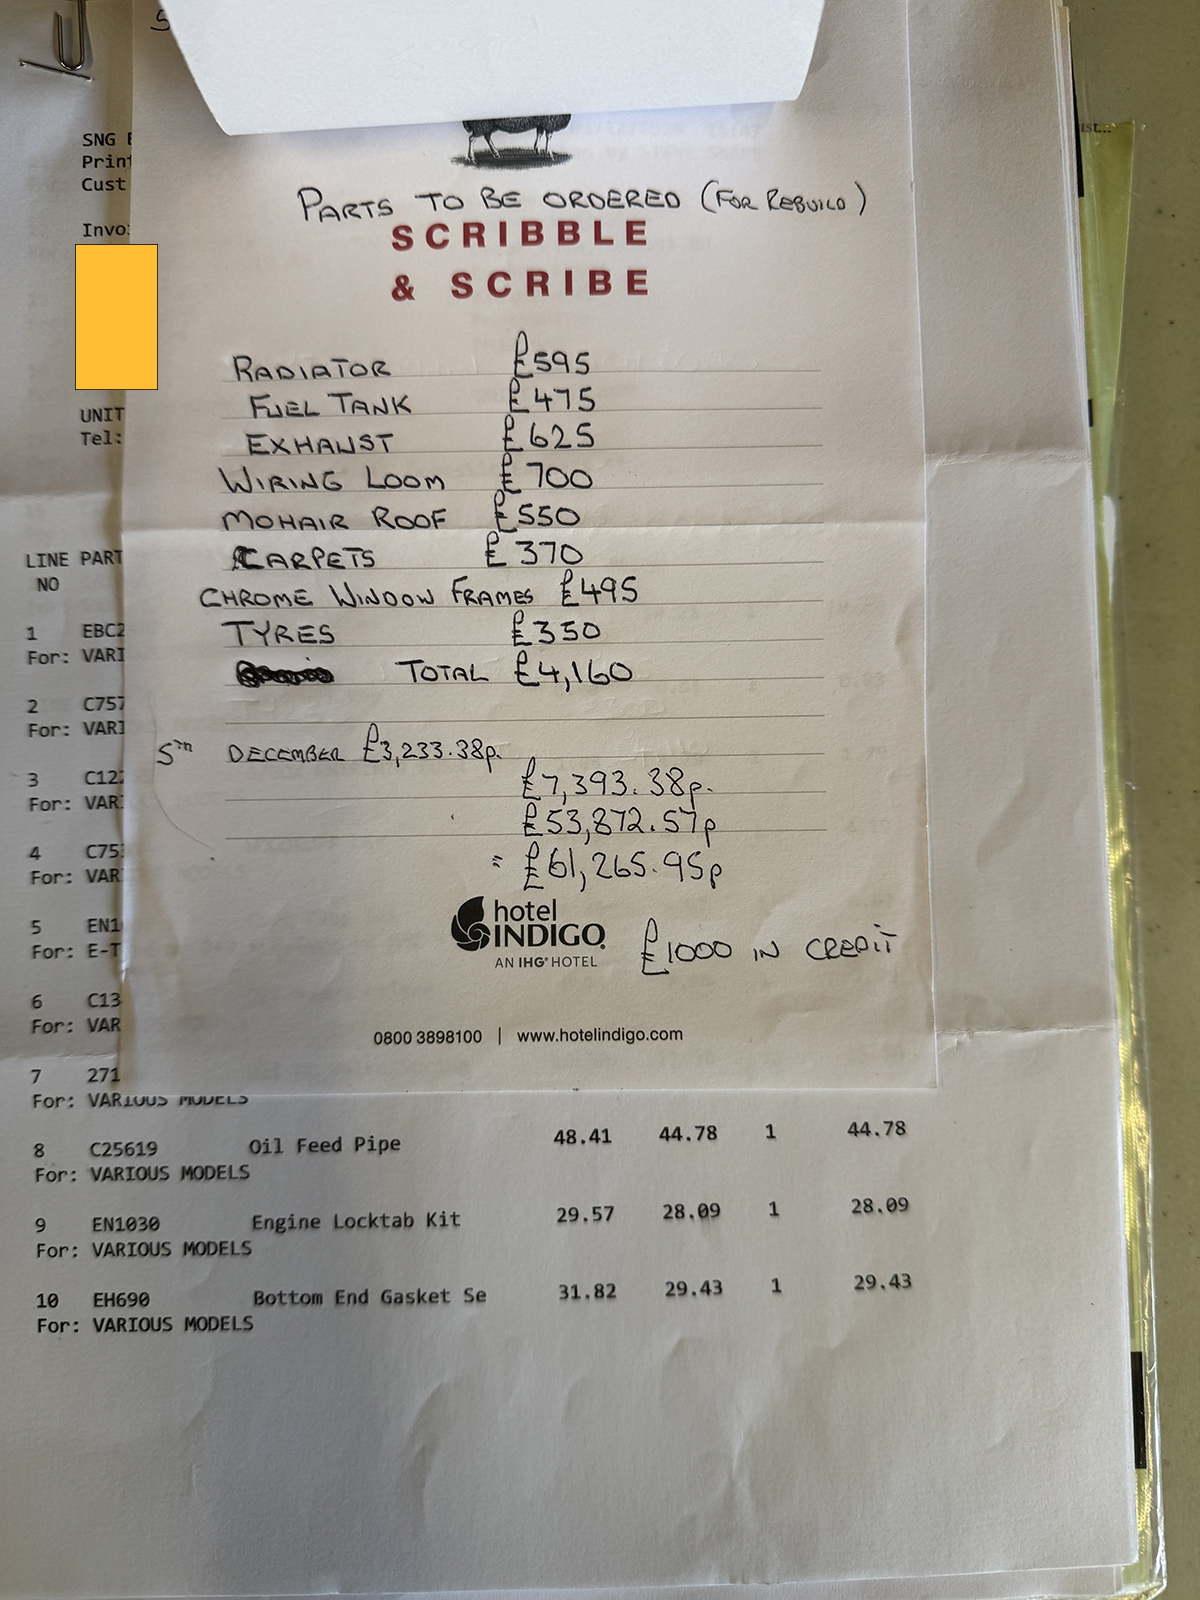 SNG
Print
Cust
PARTS TO BE ORDERED (FOR REBUILD)
SCRIBBLE
& SCRIBE
RADIATOR £595
FUEL TANK £475
EXHAUST £625
WIRING LOOM £700
MOHAIR ROOF £550
CARPETS £370
CHROME WINDOW FRAMES £495
TYRES £350
TOTAL £4,160
5TH DECEMBER £3,233.38p.
£7,393.38p.
£53,872.57p
= £61,265.95p
hotel
INDIGO
AN IHG® HOTEL
£1000 IN CREDIT
0800 3898100 | www.hotelindigo.com
UNIT
Tel:
LINE PART
NO
1 EBC2
For: VARI
2 C757
For: VARI
3 C122
For: VAR
4 C75
For: VAR
5 EN1
For: E-T
6 C13
For: VAR
7 271
For: VARIOUS MODELS
8 C25619 Oil Feed Pipe 48.41 44.78 1 44.78
For: VARIOUS MODELS
9 EN1030 Engine Locktab Kit 29.57 28.09 1 28.09
For: VARIOUS MODELS
10 EH690 Bottom End Gasket Se 31.82 29.43 1 29.43
For: VARIOUS MODELS